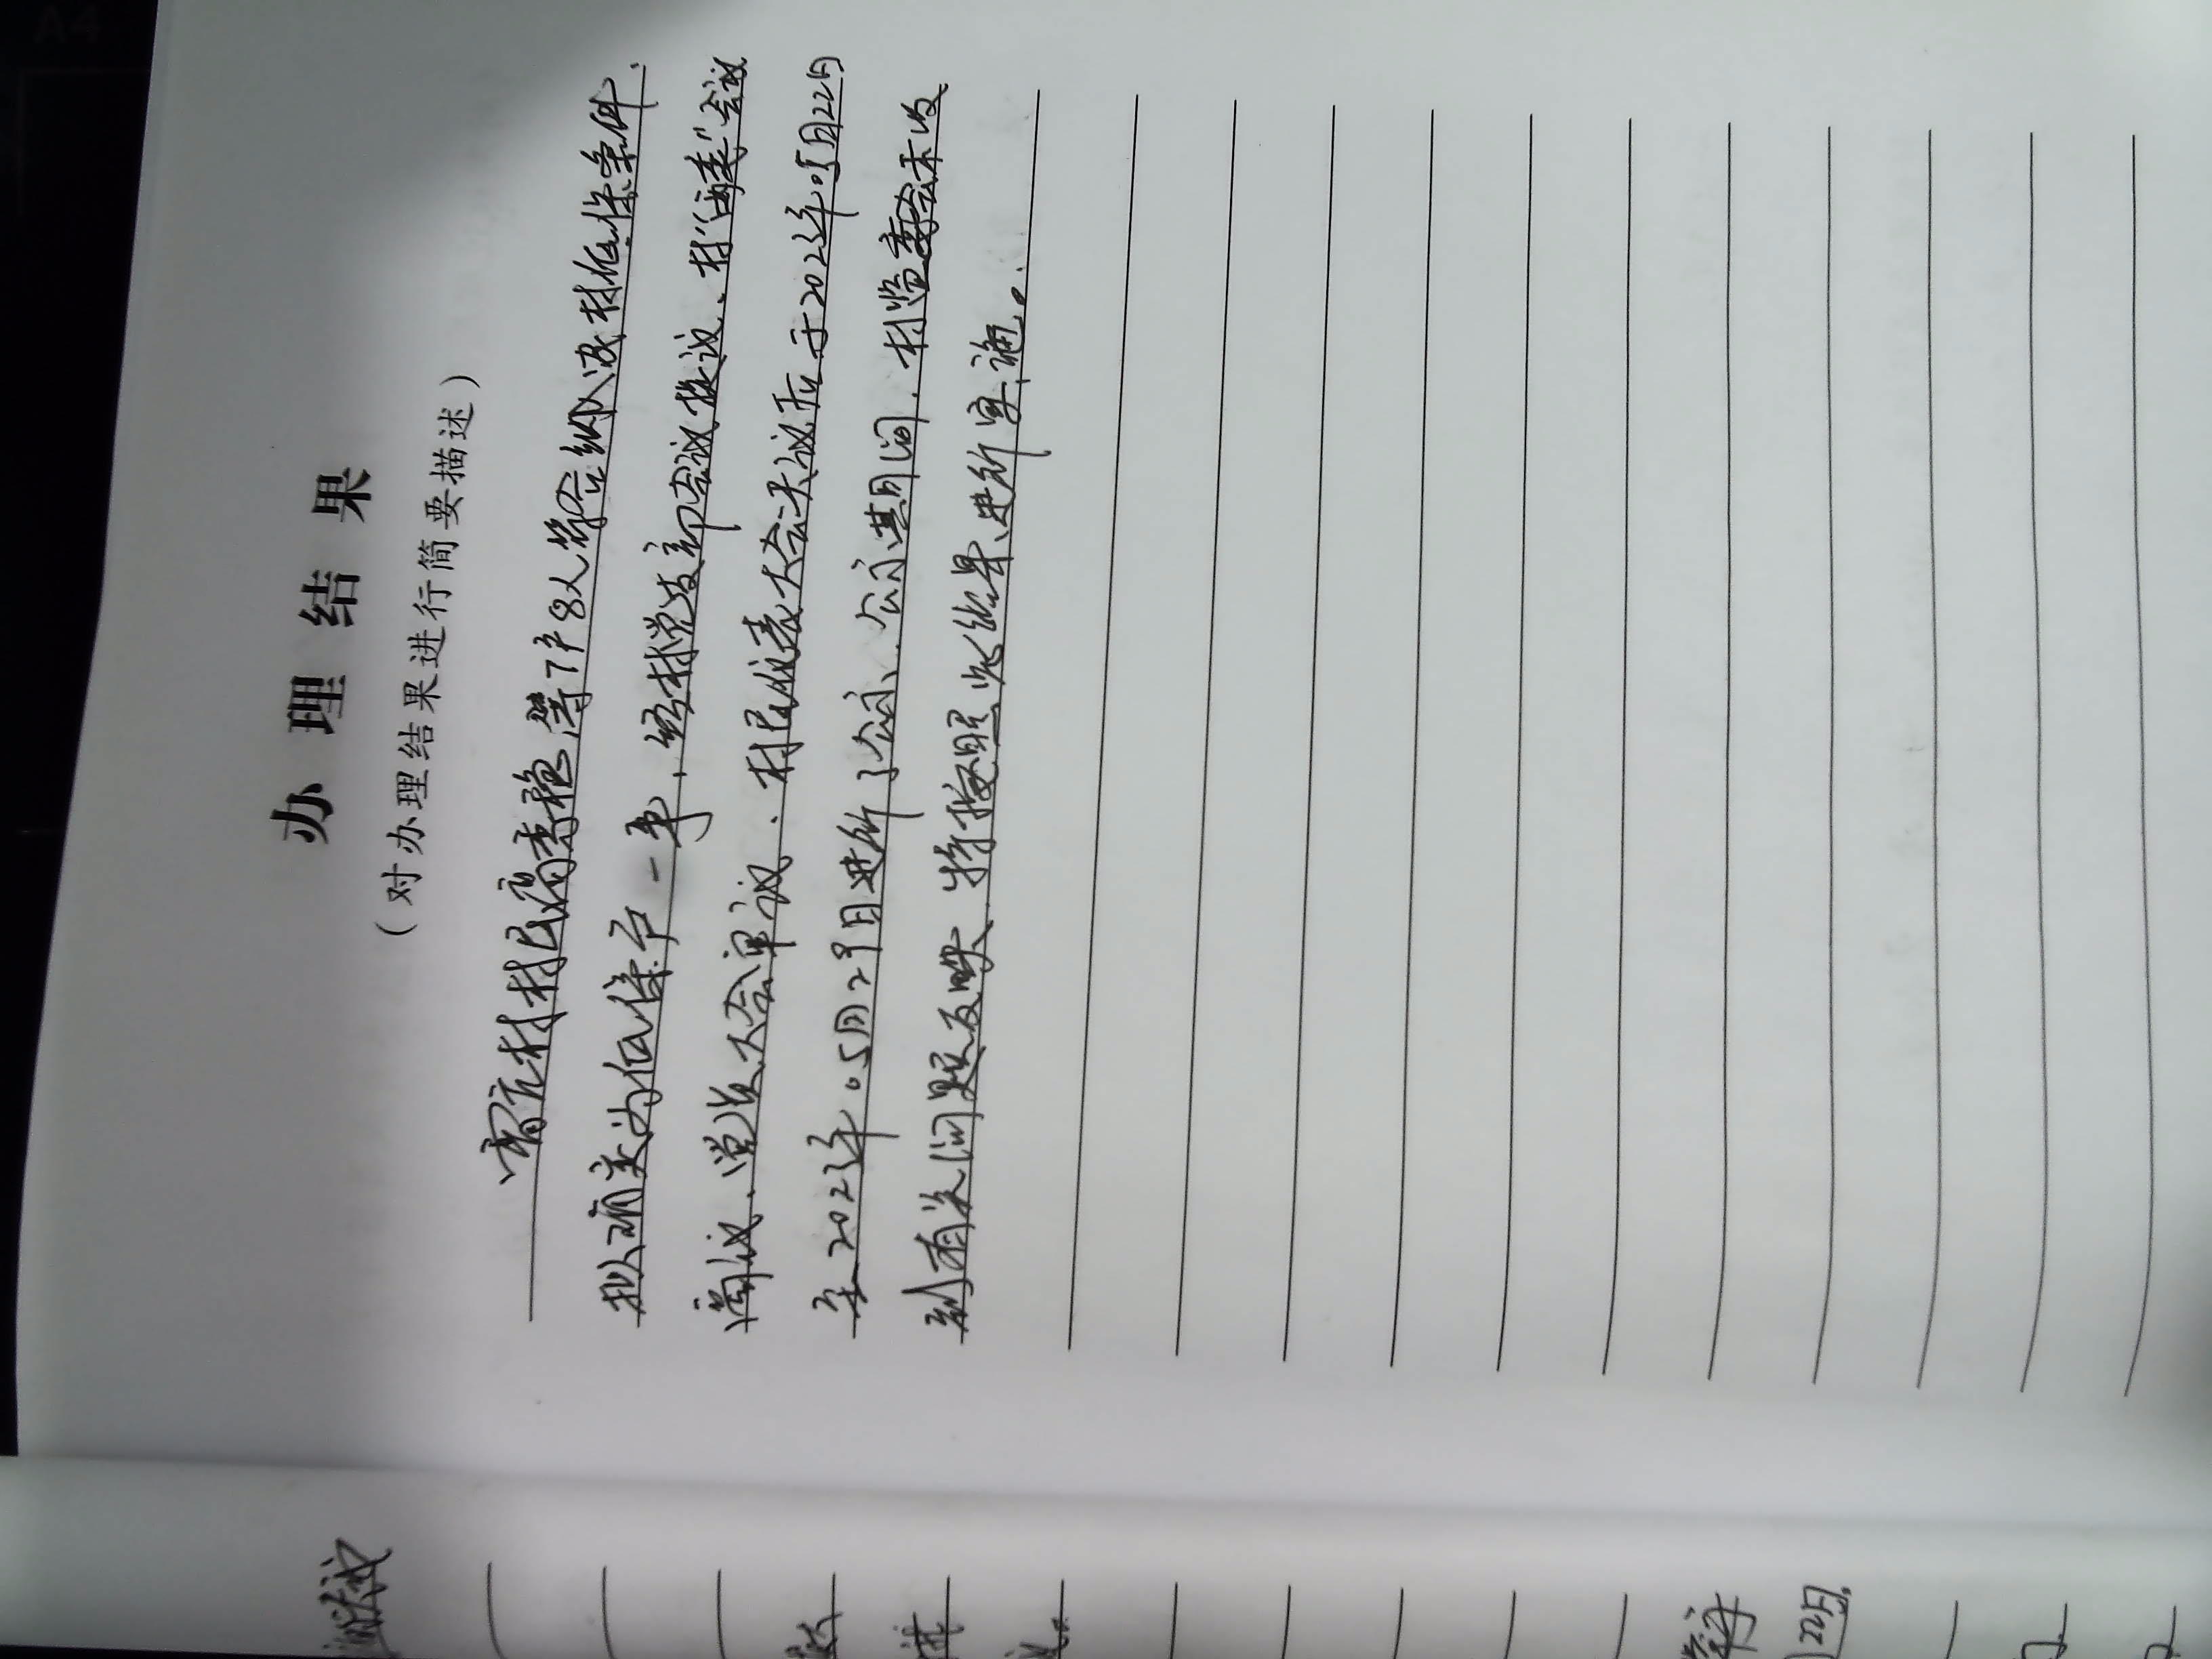 办理结果
（对办理结果进行简要描述）
村村民高秀稳等7户8人符合纳入农村低保条件，
拟确定为低保户一事，经村党支部会议提议、村“两委”会议
商议、党员大会审议、村民代表大会决议后于2023年05月22日
至2023年05月29日进行了公示，公示期间，村监委会未收
到有关问题反映，特按照此结果进行实施。
22日